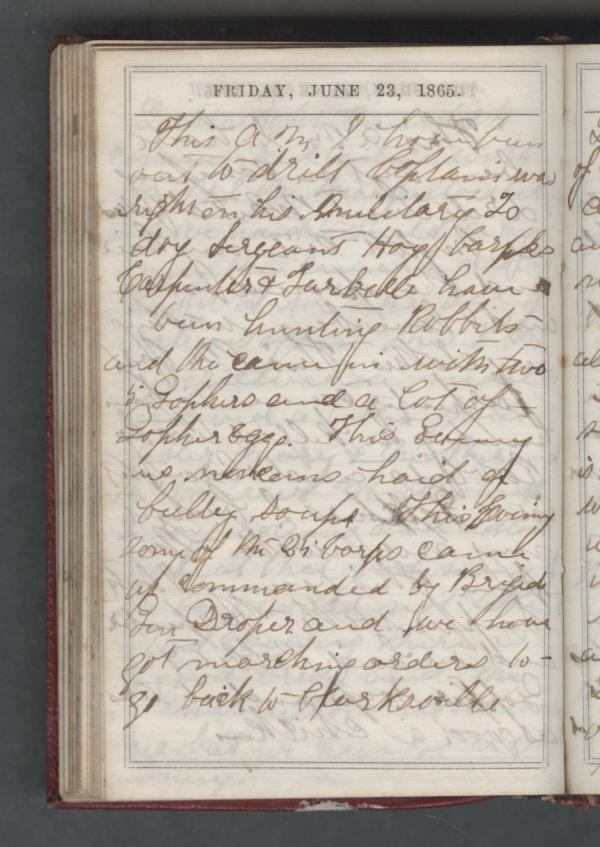 FRIDAY, JUNE 23, 1865.
This A M I have bin
out to drill Captain was
right on his military To
day Sergeant Hog Corpls
Carpenter & Turbelle have
bin hunting Robbits
and the came in with two
5 Gophers and a lot of
Gopher Eggs. This Evining
haid a
bulley soup. This Evining
some of the 25 Corps came
up commanded by Brigd
Gen Droper and we have
got marching orders to
go back to Clarksville